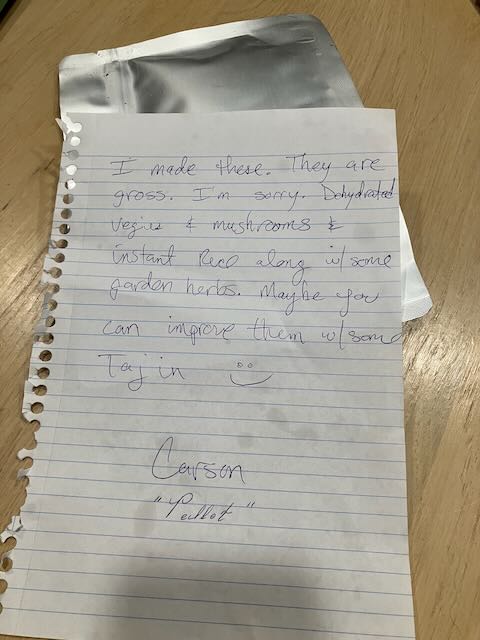 I made these. They are
gross. I'm sorry. Dehydrated
vegies & mushrooms &
instant Rice along w/ some
garden herbs. Maybe you
can improve them w/ some
Tajin
Carson